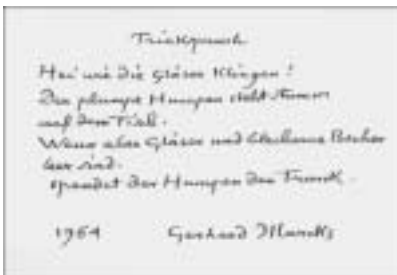 Trinkspruch
Hei wie die Gläser klingen!
Der plumpe Humpen steht stumm
auf dem Tisch.
Wenn aber Gläser und Becher
leer sind.
spendet der Humpen den Trunk.
1964 Gerhard Marcks